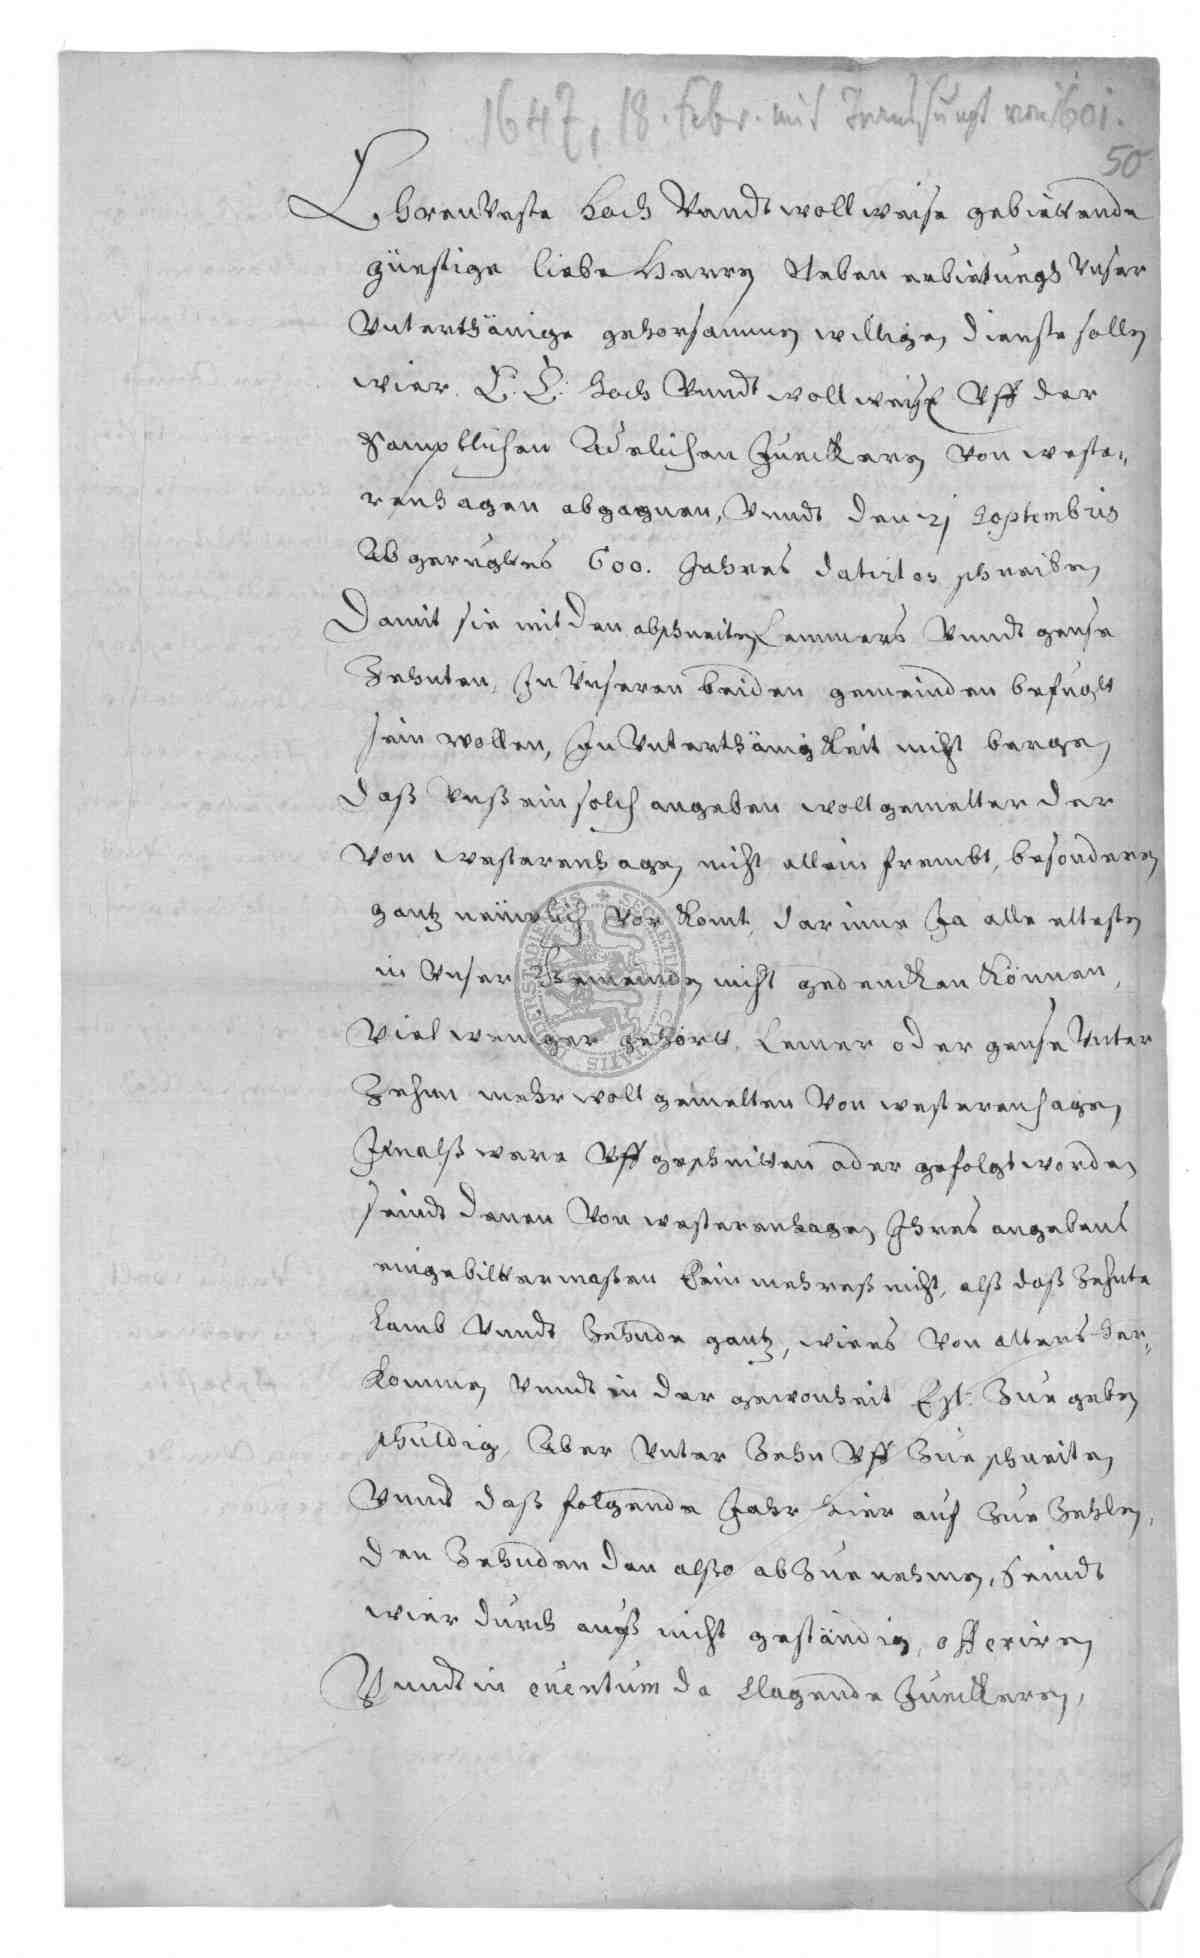 1647, 18. Febr. mit Transsumpt von 1601.
50
Ehrenveste hoch Vundt wollweise gebiettende
günstige liebe Herrn Neben erbietungh Vnser
Vnterthänige gehorsammen willigen dienste sollen
wier E. E. hoch Vundt wollweise Vff der
Samptlichen Adelichen Junckern Von weste-
renhagen abgagnen, Vundt den 21 Septembris
Abgerugktes 600. Jahres datirtes schreiben
Damit sie mit den abschneiten Lemmers Vundt gense
Zehnten, In Vnseren beiden gemeinden befugtt
sein wollen, In Vnterthänigkeit nicht bergen
daß Vnß ein solch angeben wollgemelter der
Von westerenhagen nicht allein frembt, besonderen
gantz neüwlich Vor komt, darinne Ja alle eltesten
in Vnser Gemeinden nicht gedencken können,
Viel weniger gehörtt, Lemer oder gense Vnter
Zehen mehr wollgemelten Von westerenhagen
Jemalß were Vff geschnitten oder gefolgt worden
seindt denen Von westerenhagen Ihres angebens
eingebilter maßen kein mehreß nicht, alß daß Zehnte
Lamb Vundt Zehnde gantz, wie es Von alters her-
kommen Vundt in der gewonheit Ist Zue geben
schuldig, Aber Vnter Zehn Vff Zue schneiten
Vund daß folgende Jahr hier auf Zue Zehlen,
den Zehnden den alßo ab Zue nehmen, seindt
wier durch auß nicht geständig, offeriren
Vundt in euentum da klagende Junckern,